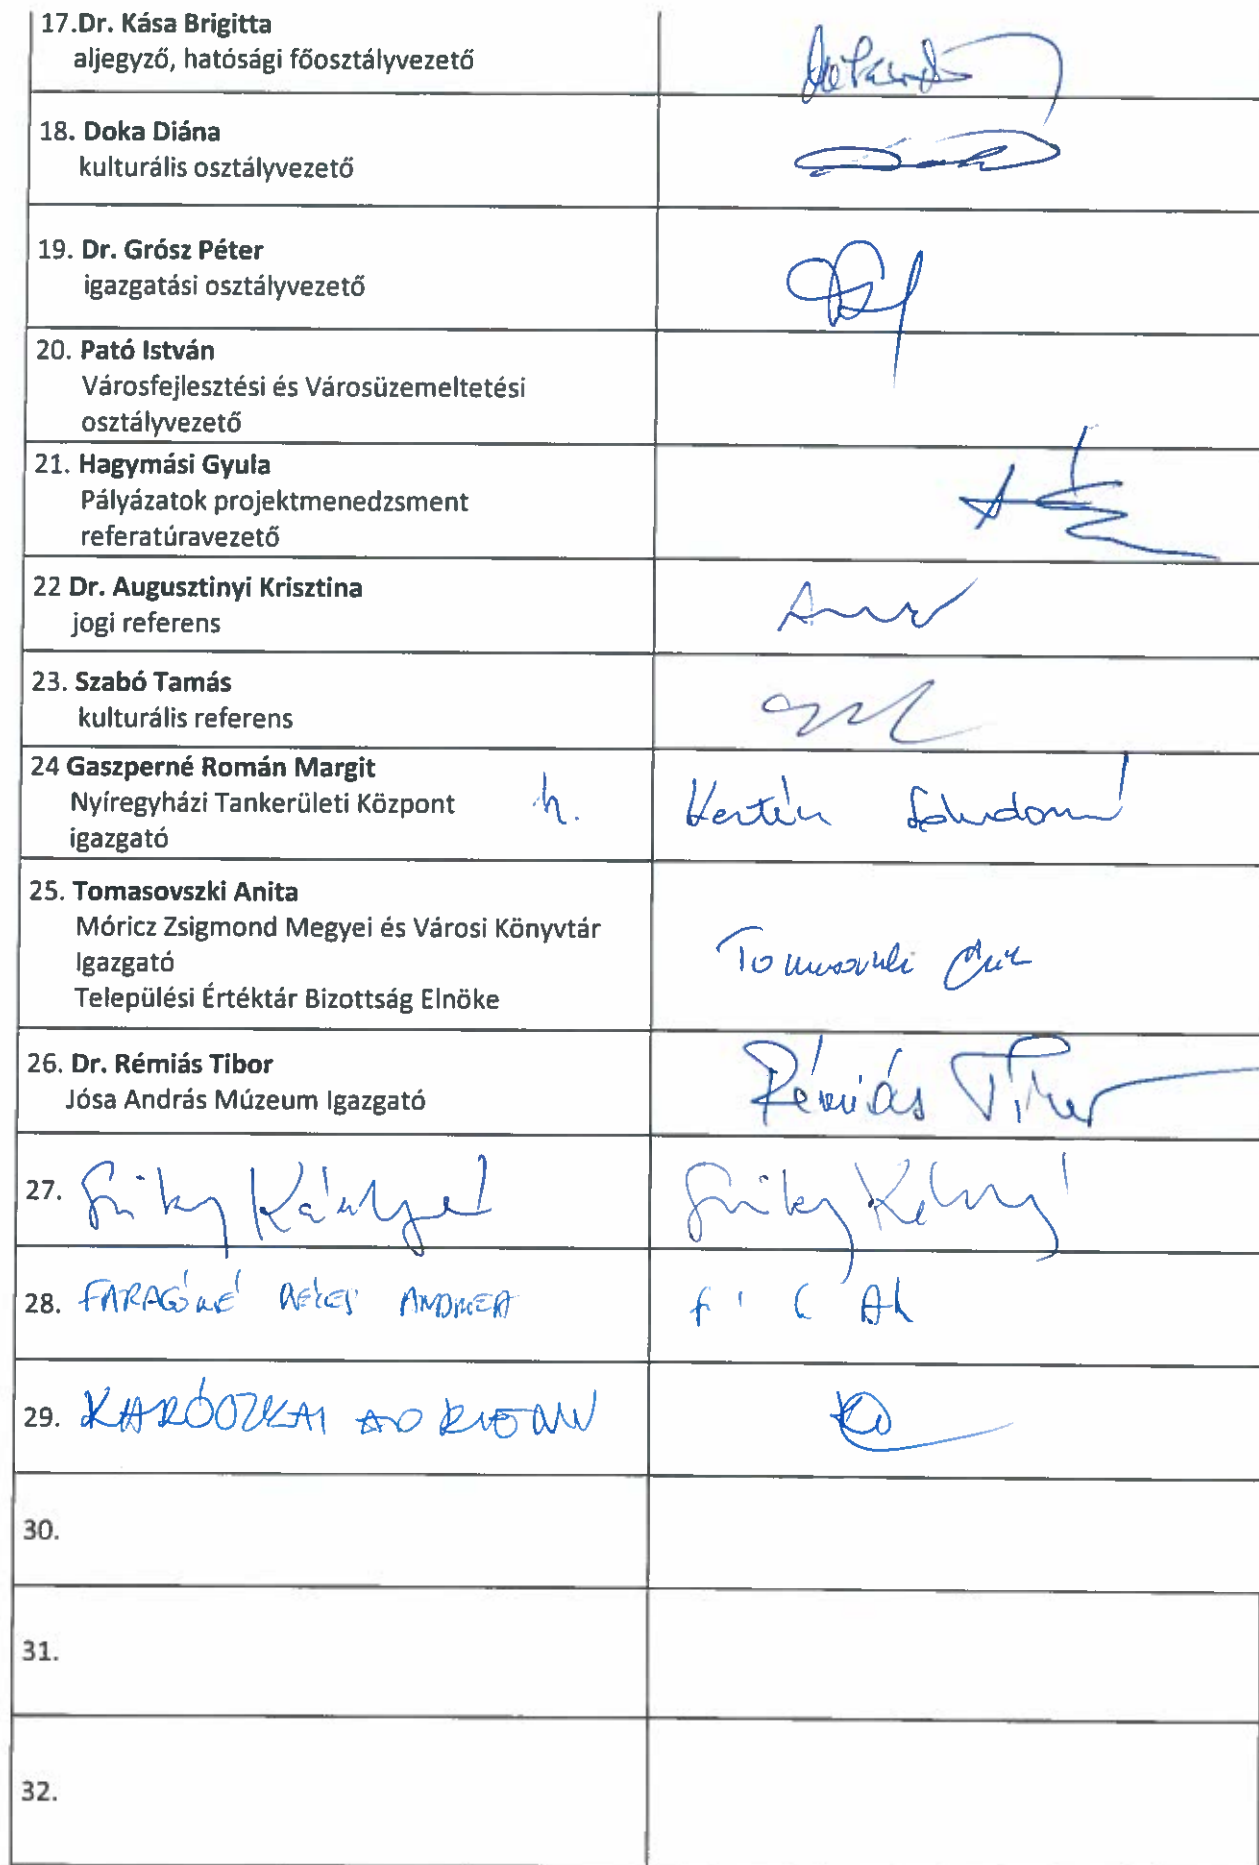 17.Dr. Kása Brigitta
aljegyző, hatósági főosztályvezető
18. Doka Diána
kulturális osztályvezető
19. Dr. Grósz Péter
igazgatási osztályvezető
20. Pató István
Városfejlesztési és Városüzemeltetési
osztályvezető
21. Hagymási Gyula
Pályázatok projektmenedzsment
referatúravezető
22 Dr. Augusztinyi Krisztina
jogi referens
23. Szabó Tamás
kulturális referens
24 Gaszperné Román Margit
Nyíregyházi Tankerületi Központ h.
igazgató
25. Tomasovszki Anita
Móricz Zsigmond Megyei és Városi Könyvtár
Igazgató
Települési Értéktár Bizottság Elnöke
26. Dr. Rémiás Tibor
Jósa András Múzeum Igazgató
Rémiás Tibor
27.
28. FARAGÓNÉ ANDREA
29.
30.
31.
32.